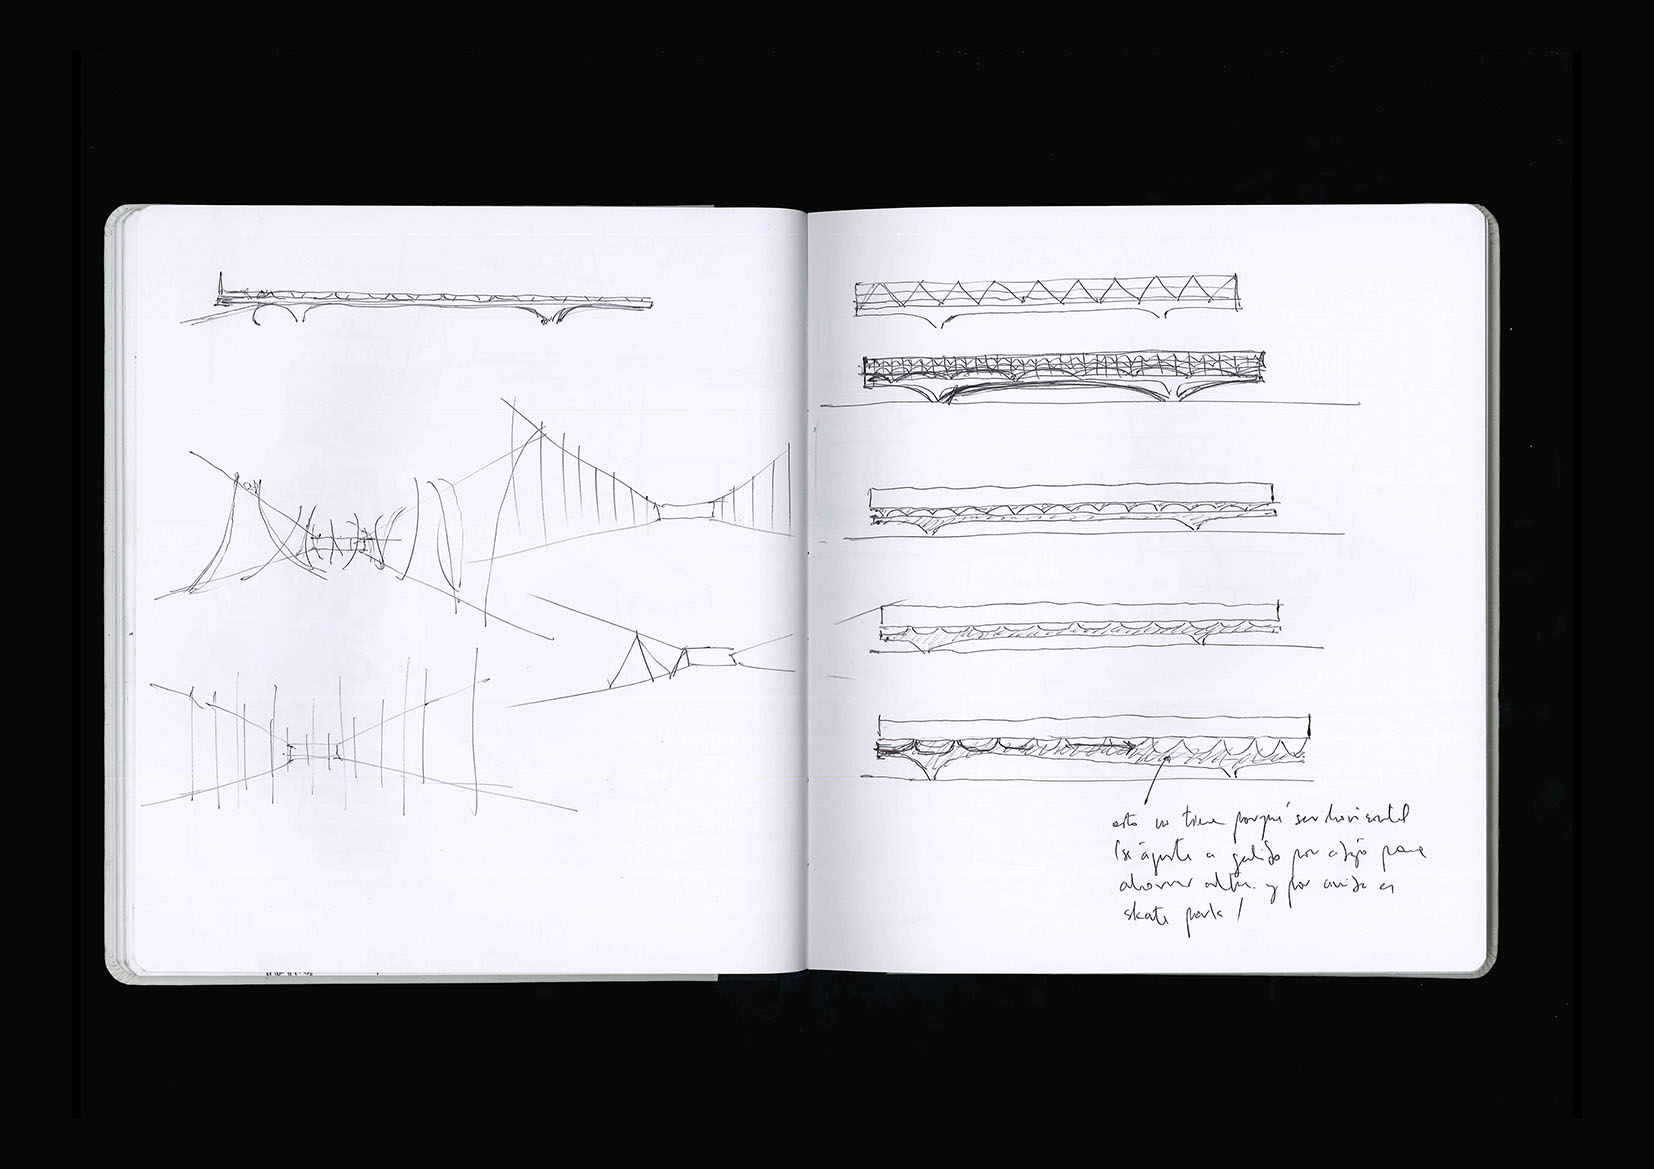 esto no tiene porqué ser horizontal
(se ajusta a galibo por abajo para
ahorrar altura y por arriba es
skate park!